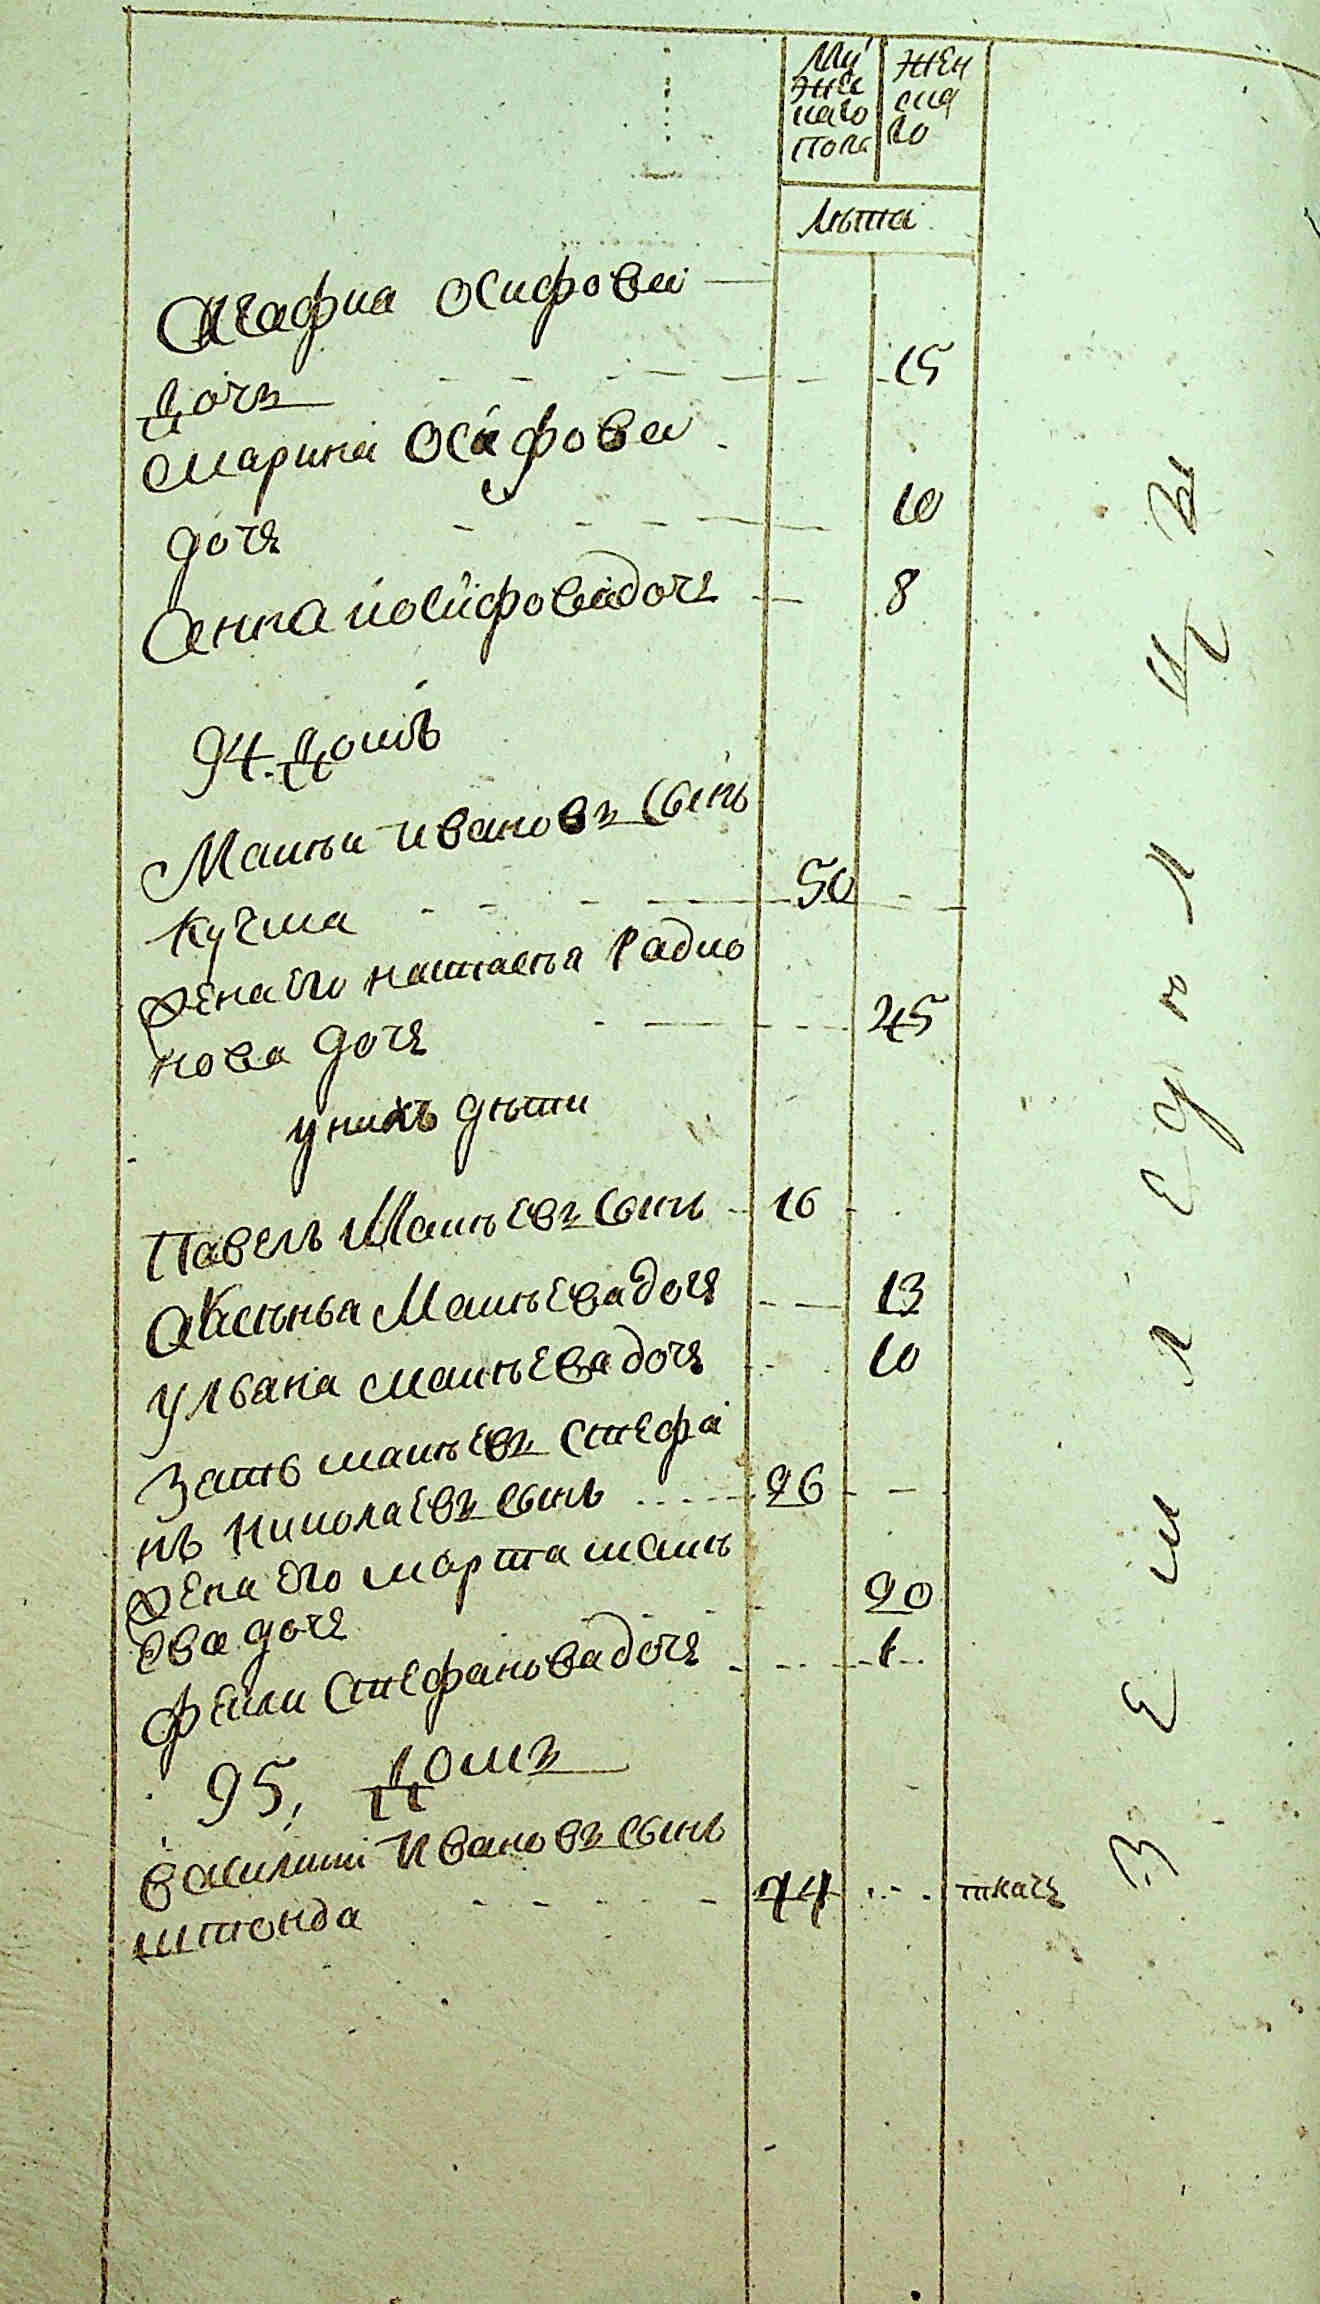 Му
жес
каго
пола
жен
ска
го
лѣта
Агафиа Осифова
дочь 15
Марина Осифова
дочь 10
Анна Иосифова дочь 8
94. Домъ
Матѣи Ивановъ сынъ
Кучма 50
Жена его Наталѣа Радио
нова дочь 45
у нихъ дѣти
Павелъ Матѣевъ сынъ 16
Аксѣнья Матѣева дочь 13
Ульана Матѣева дочь 10
Зать Матѣевъ Стефа
нъ Николаевъ сынъ 26
Жена его Марта Матѣ
ева дочь 20
Стефанова дочь 1
95, Домъ
Василии Ивановъ сынъ
Штонда 44 ткачь